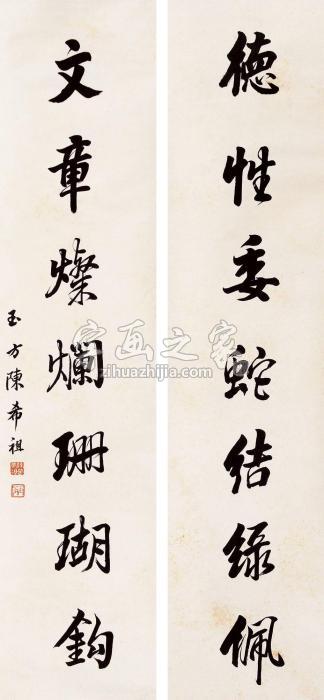 德性委蛇结綠佩
文章燦爛珊瑚鈎
玉方陳希祖
字画之家
zihuazhijia.com